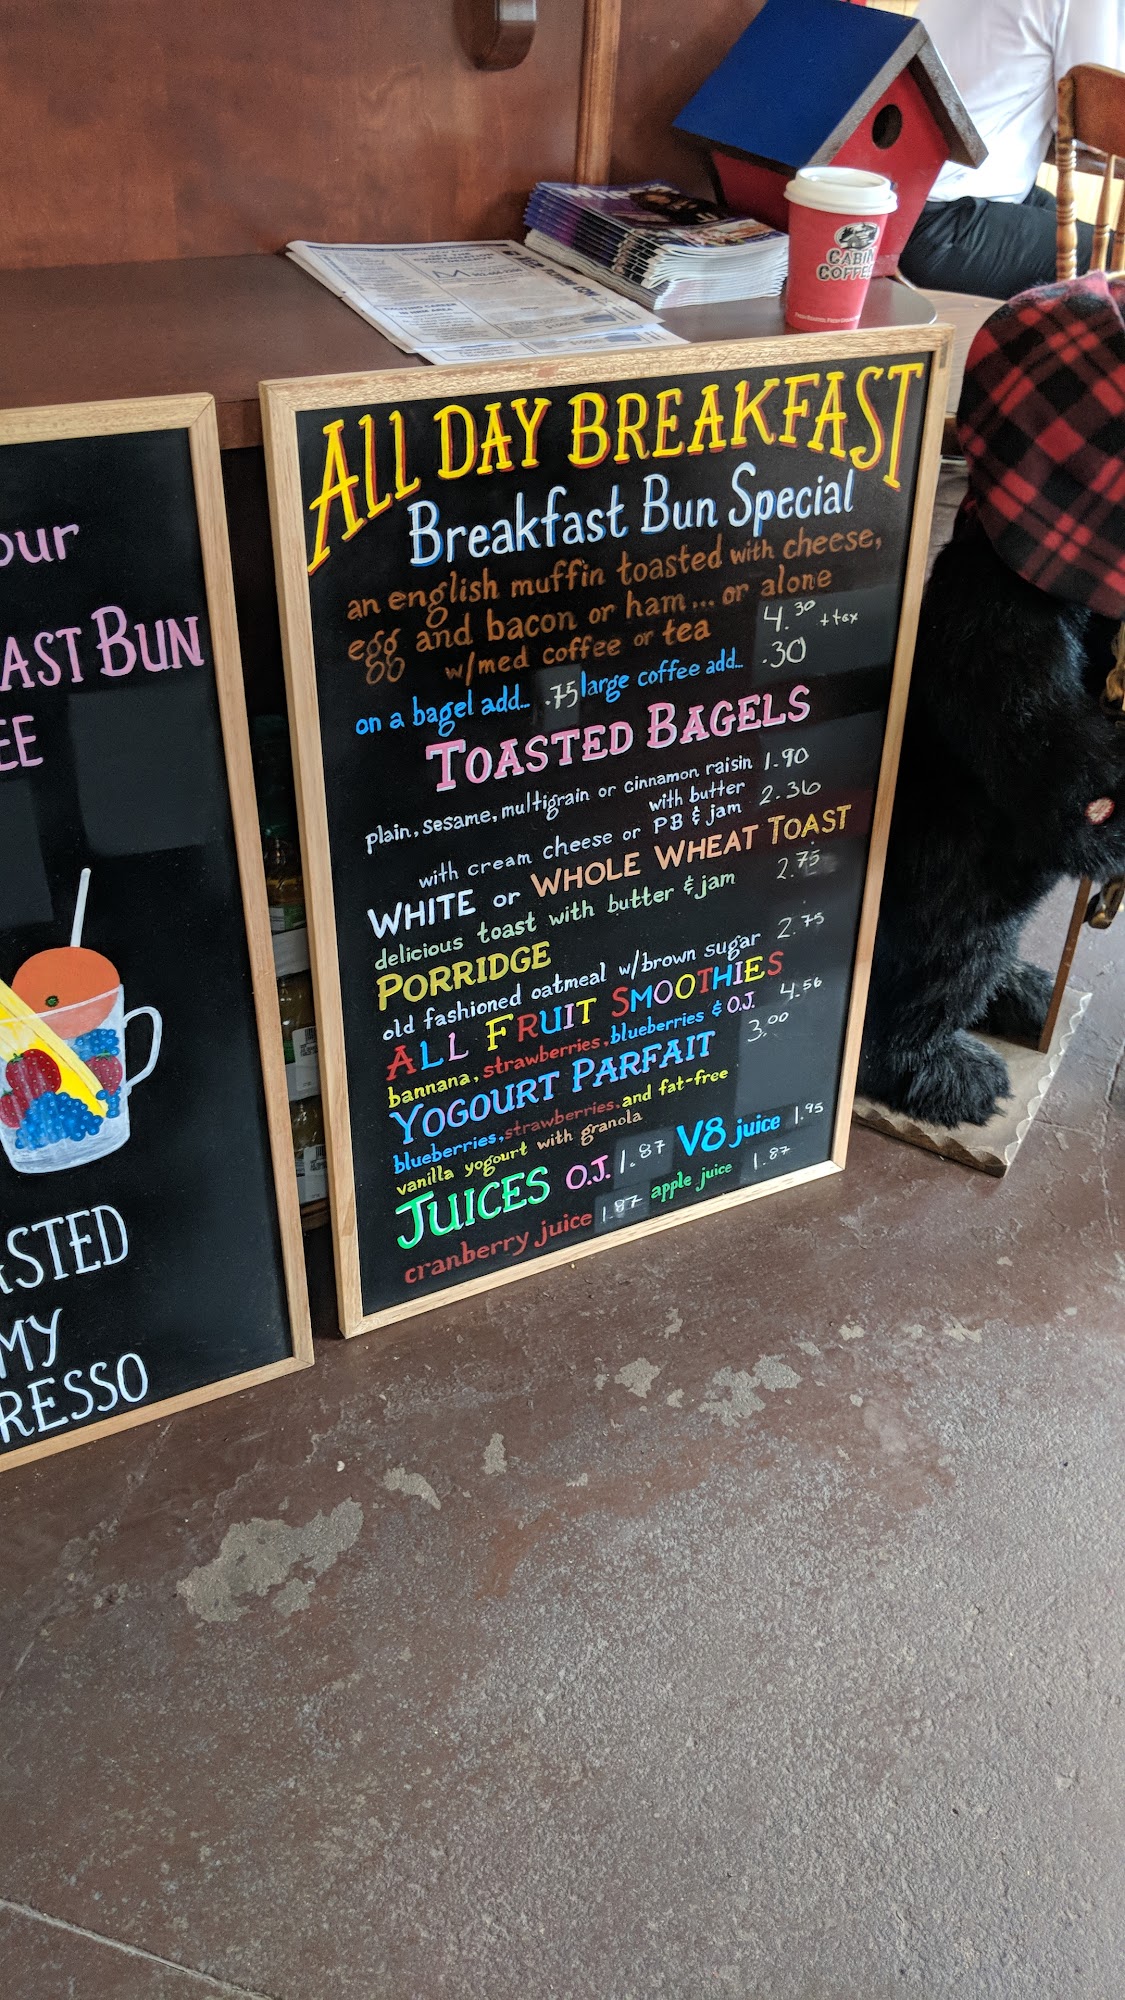 CABIN
COFFEE
ALL DAY BREAKFAST
Breakfast Bun Special
an english muffin toasted with cheese,
egg and bacon or ham... or alone
w/med coffee or tea 4.30 + tax
on a bagel add... .75 large coffee add... .30
TOASTED BAGELS
plain, sesame, multigrain or cinnamon raisin 1.90
with butter
with cream cheese or PB & jam 2.36
WHITE or WHOLE WHEAT TOAST
delicious toast with butter & jam 2.75
PORRIDGE
old fashioned oatmeal w/brown sugar 2.75
ALL FRUIT SMOOTHIES
bannana, strawberries, blueberries & O.J. 4.56
YOGOURT PARFAIT 3.00
blueberries, strawberries, and fat-free
vanilla yogourt with granola
JUICES O.J. 1.87 V8 juice 1.95
cranberry juice 1.87 apple juice 1.87
our
AST BUN
EE
STED
MY
RESSO